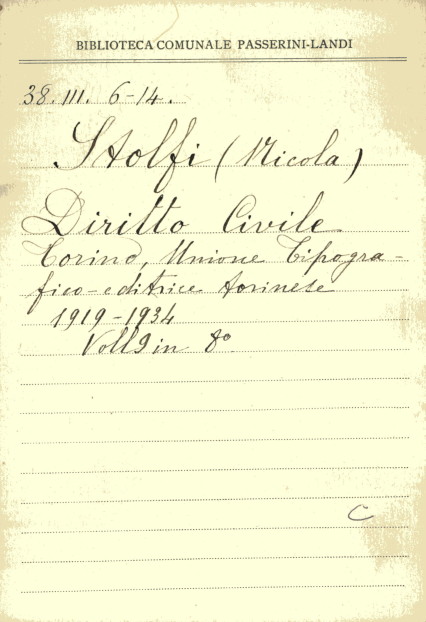 BIBLIOTECA COMUNALE PASSERINI-LANDI
38. III. 6-14.
Stolfi (Nicola)
Diritto Civile
Torino, Unione Tipogra-
fico-editrice torinese
1919-1934
Voll 9 in 8º
C